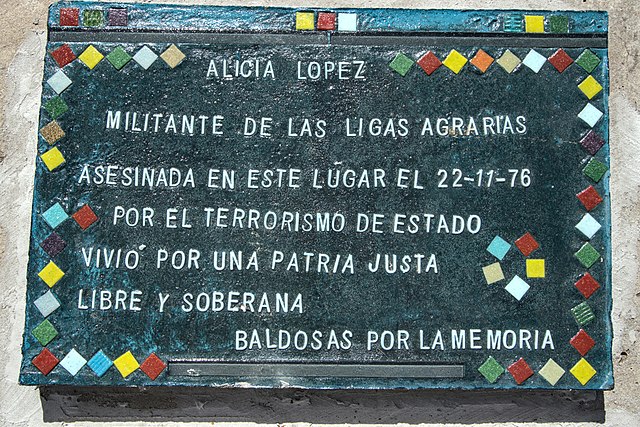 ALICIA LOPEZ
MILITANTE DE LAS LIGAS AGRARIAS
ASESINADA EN ESTE LUGAR EL 22-11-76
POR EL TERRORISMO DE ESTADO
VIVIO POR UNA PATRIA JUSTA
LIBRE Y SOBERANA
BALDOSAS POR LA MEMORIA